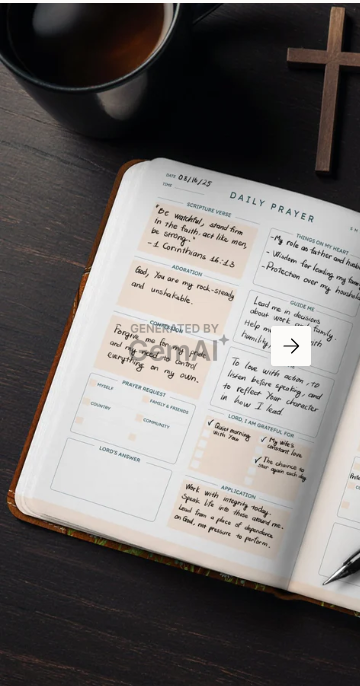 DATE 03/16/25
TIME
DAILY PRAYER
SCRIPTURE VERSE
"Be watchful, stand firm
in the faith, act like men,
be strong."
- 1 Corinthians 16:13
ADORATION
God, You are my rock-steady
and unshakable.
Forgive me for
and my control
everything on my own.
PRAYER REQUEST
MYSELF
FAMILY & FRIENDS
COUNTRY
COMMUNITY
LORD'S ANSWER
THINGS ON MY HEART
-My role as father and
- Wisdom for leading my
-Protection over my
GUIDE ME
Lead me in decisions
about work family.
Help me
Family, with
To love with action, to
listen before speaking, and
to reflect Your character
in how I lead.
LORD, I AM GRATEFUL FOR
✓ Quiet morning
with Thee
✓ My wife's
constant love
✓ The chance to
sow again each day
APPLICATION
Work with integrity today.
Speak life into those around me.
Lead from a place of dependence
on God, not pressure to perform.
GENERATED BY
GemAI